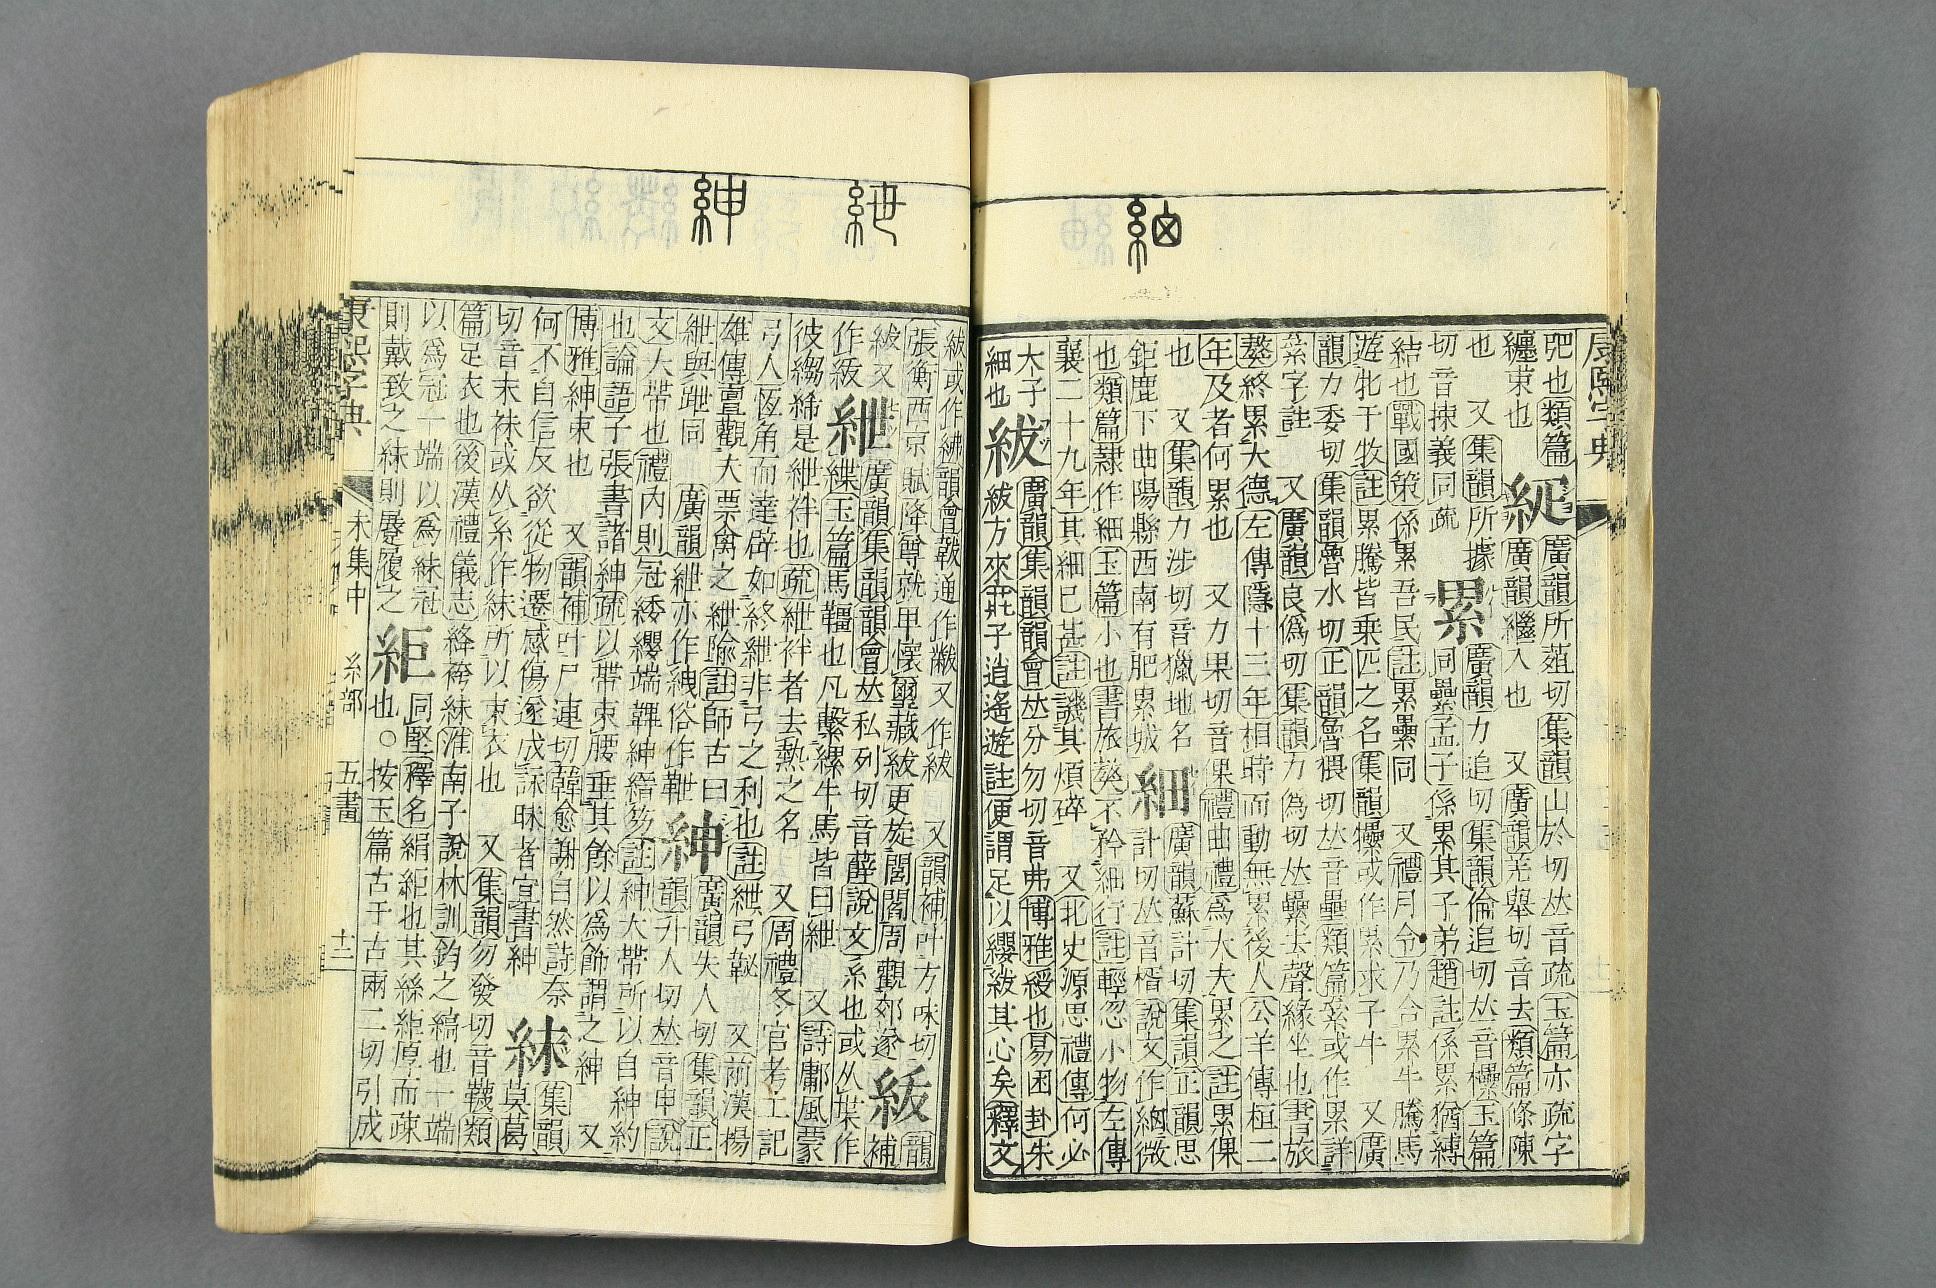 康熙字典
肥也類篇
纏束也
紴
廣韻所葅切集韻山於切𠀤音疏玉篇亦疏字
廣韻繼入也 又廣韻羌舉切音去類篇條陳
也 又集韻所據
切音揀義同疏
累
廣韻力追切集韻倫追切𠀤音欙玉篇
同纍孟子係累其子弟趙註係累猶縛
結也戰國策係累吾民註累纍同 又禮月令乃合累牛騰馬
遊牝于牧註累騰皆乗匹之名集韻欙或作累求子牛 又廣
韻力委切集韻魯水切正韻魯猥切𠀤音壘類篇絫或作累詳
絫字註 又廣韻良僞切集韻力僞切𠀤纍去聲緣坐也書旅
獒終累大德左傳隱十三年相時而動無累後人公羊傳桓二
年及者何累也 又力果切音倮禮曲禮爲大夫累之註累倮
也 又集韻力涉切音獵地名
鉅鹿下曲陽縣西南有肥累城
細
廣韻蘇計切集韻正韻思
計切𠀤音楷說文作細微
也類篇隷作細玉篇小也書旅獒不矜細行註輕忽小物左傳
襄二十九年其細已甚註譏其煩碎 又北史源思禮傳何必
太子
細也
紱
廣韻集韻韻會𠀤分勿切音弗博雅綬也易困卦朱
紱方來莊子逍遙遊註便謂足以纓紱其心矣釋文
紱或作紼韻會韍通作黻又作紱 又韻補叶方味切
張衡西京賦降尊就甲懷璽藏紱更旋閭閻周觀郊遂
紱又
作紴
紲
紱
韻
補
廣韻集韻韻會𠀤私列切音薛說文系也或从枼作
緤玉篇馬韁也凡繫縲牛馬皆曰紲 又詩鄘風蒙
彼縐絺是紲袢也疏紲袢者去熱之名 又周禮冬官考工記
弓人恆角而達辟如終紲非弓之利也註紲弓䪐 又前漢揚
雄傳亶觀夫票禽之紲隃註師古曰
紲與跇同 廣韻紲亦作絏俗作靾
紳
廣韻失人切集韻正
韻升人切𠀤音申說
文大帶也禮內則冠緌纓端韠紳搢笏註紳大帶所以自紳約
也論語子張書諸紳疏以帶束腰垂其餘以爲飾謂之紳 又
博雅紳束也 又韻補叶尸連切韓愈謝自然詩奈
何不自信反欲從物遷感傷遂成詠昧者宜書紳
紣
集韻
莫葛
切音末袜或从糸作紣所以束衣也 又集韻勿發切音韈類
篇足衣也後漢禮儀志絳袴紣淮南子說林訓鈞之縞也一端
以爲冠一端以爲紣冠
則戴致之紣則䠱履之
䋎
同堅釋名絹䋎也其絲䋎厚而疎
也○按玉篇古千古兩二切引成
康熙字典 未集中 糸部 五畫 十二